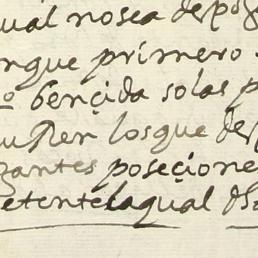 ual nosea despo
nque primero
bençida solas p
los que des
zantes poseçione
etentelaqual